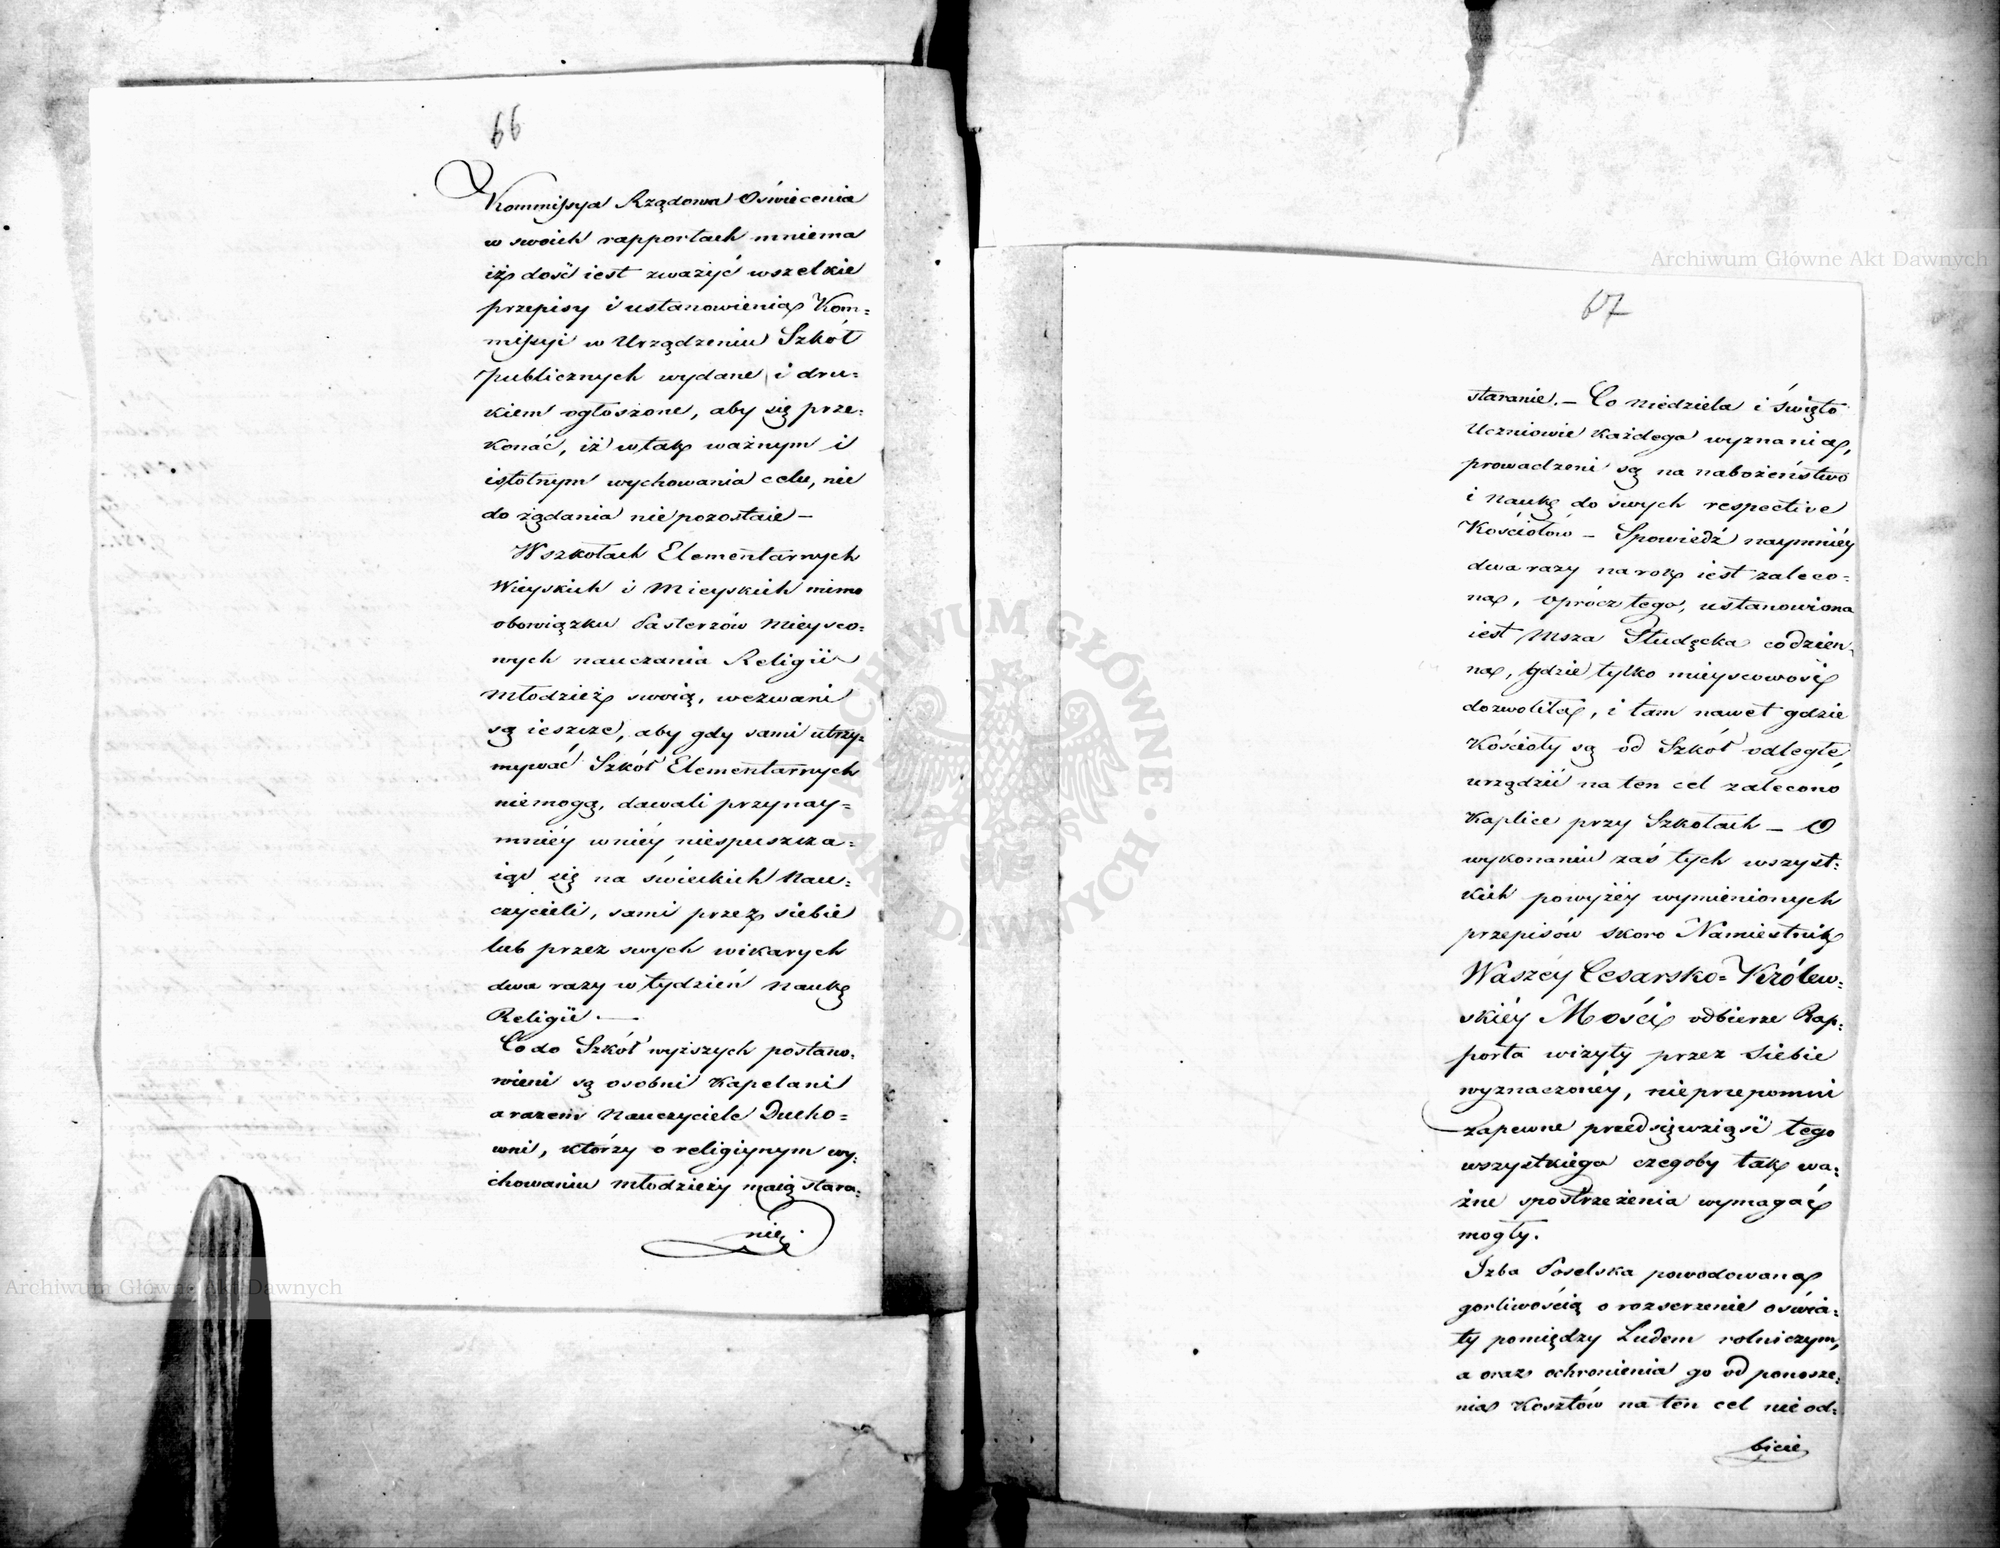 66
Kommissya Rządowa Oświecenia
w swoich rapportach mniema
iż dość iest zważyć wszelkie
przepisy i ustanowienia Kom=
missyi w Urządzeniu Szkół
publicznych wydane i dru=
kiem ogłoszone, aby się prze=
konać, iż w tak ważnym i
istotnym wychowania celu, nie
do żądania nie pozostaie —
W szkołach Elementarnych
Wieyskich i Mieyskich mimo
obowiązku Pasterzów Mieysco=
wych nauczania Religii
młodzież swoią, wezwani
są ieszcze, aby gdy sami utrzy=
mywać Szkół Elementarnych
niemogą, dawali przynay=
mniéy w niéy niespuszcza=
iąc się na świeckich Nau=
czycieli, sami przez siebie
lub przez swych wikarych
dwa razy w tydzień Naukę
Religii. —
Co do Szkół wyższych postano=
wieni są osobni Kapelani
a razem Nauczyciele Ducho=
wni, którzy o religiynym wy=
chowaniu młodzieży maią stara=
nie
67
staranie. — Co Niedziela i święto
Uczniowie każdego wyznania,
prowadzeni są na nabożeństwo
i Naukę do swych respective
Kościołów — Spowiedź naymniéy
dwa razy na rok iest zaleco=
na, oprócz tego, ustanowiona
iest Msza Studęcka codzien=
na, gdzie tylko mieyscowość
dozwoliła, i tam nawet gdzie
Kościoły są od Szkół odległe,
urządzić na ten cel zalecono
Kaplice przy Szkołach — O
wykonaniu zaś tych wszyst=
kich powyżéy wymienionych
przepisów skoro Namiestnik
Waszéy Cesarsko=Królew=
skiéy Mości odbierze Rap=
porta wizyty przez siebie
wyznaczonéy, nieprzepomni
zapewne przedsięwziąść tego
wszystkiego czegoby tak wa=
żne spostrzeżenia wymagać
mogły.
Izba Poselska powodowana
gorliwością o rozserzenie oświa=
ty pomiędzy Ludem rolniczym,
a oraz ochronienia go od ponosze=
nia Kosztów na ten cel nie od=
bicie
Archiwum Główne Akt Dawnych
ARCHIWUM GŁÓWNE · AKT DAWNYCH ·
Archiwum Główne Akt Dawnych